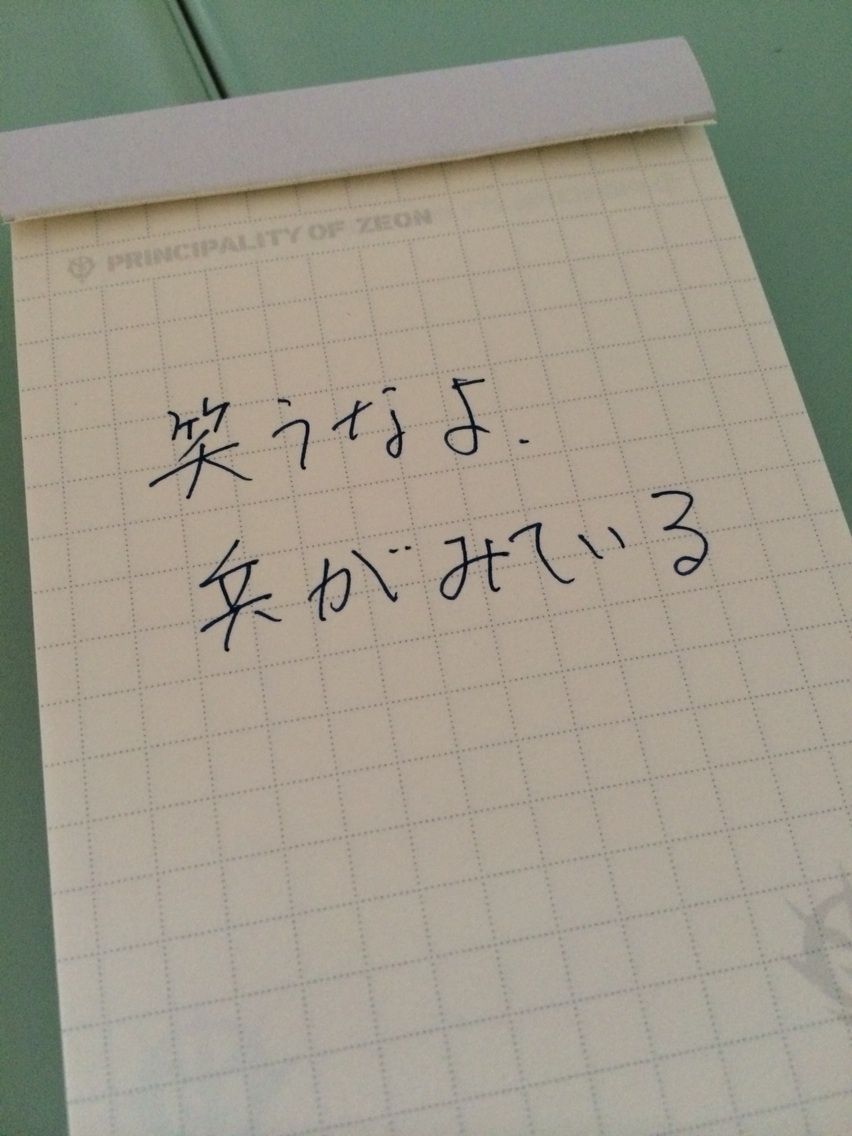 PRINCIPALITY OF ZEON
笑うなよ.
兵がみている